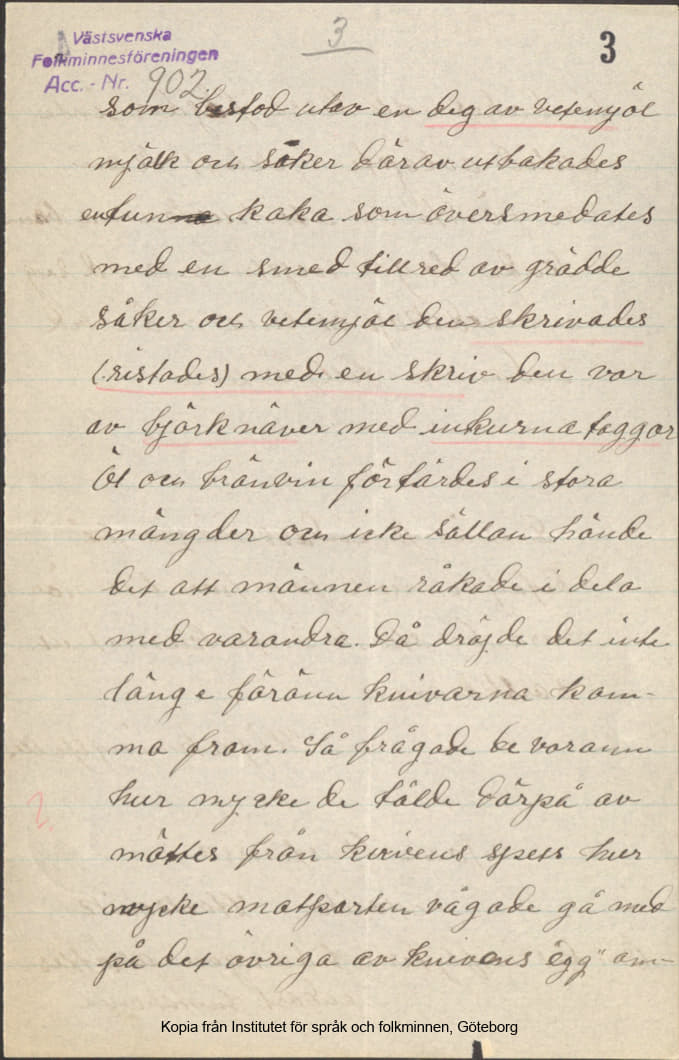 3
3
Västsvenska
Folkminnesföreningen
Acc. - Nr. 902.
som bestod utav en deg av vetemjöl
mjölk och såker därav utbakades
en tun kaka som översmedates
med en smed tillred av grädde
såker och vetemjöl den skrivades
(ristades) med en skriv den var
av björknäver med inkurna taggar
Öl och bränvin förtärdes i stora
mängder och icke sällan hände
det att männen råkade i dela
med varandra. Då dröjde det inte
länge föränn knivarna kom-
ma fram. Så frågade de varann
hur mycke de tålde därpå av
2.
mättes från knivens spets hur
mycke motparten vågade gå med
på det övriga av knivens "egg" om-
Kopia från Institutet för språk och folkminnen, Göteborg